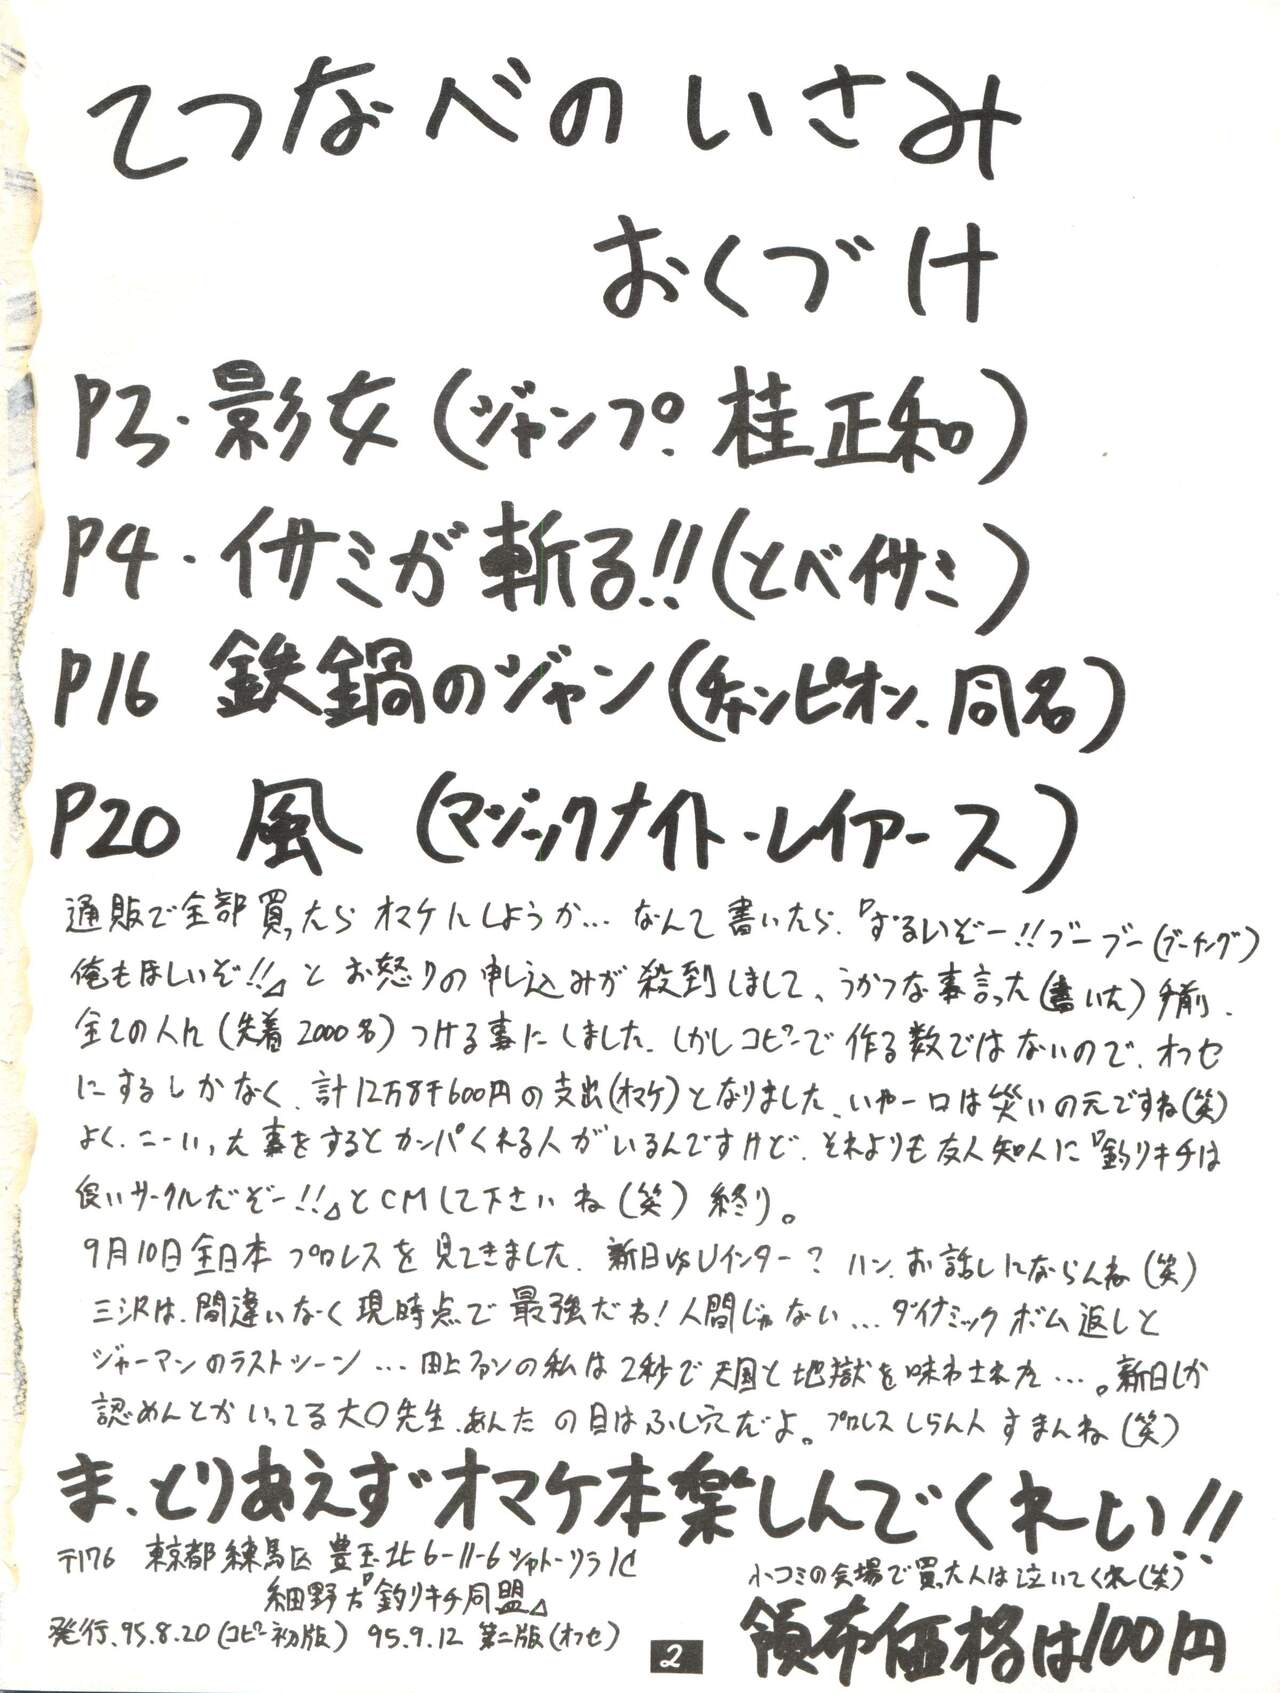 てつなべの いさみ
おくづけ
P3・影女(ジャンプ、桂正和)
P4・イサミが斬る!!(とべイサミ)
P16 鉄鍋のジャン(チャンピオン、同名)
P20 風 (マジックナイト・レイアース)
通販で全部買ったらオマケにしようか… なんて書いたら、『ずるいぞー!!ブーブー(ブーイング)
俺もほしいぞ!!』と お怒りの申し込みが殺到しまして、うかつな事言った(書いた)手前、
全ての人に(先着2000名)つける事にしました、しかしコピーで作る数ではないので、オフセ
にするしかなく、計12万8千600円の支出(オマケ)となりました、いやー口は災いの元ですね(笑)
よく、こーいった事をするとカンパくれる人がいるんですけど、それよりも友人知人に『釣りキチは
良いサークルだぞー!!』とCMして下さいね(笑)終り。
9月10日全日本 プロレスを見てきました、新日vsUインター? ハン、お話しにならんね(笑)
三沢は、間違いなく現時点で最強だね!人間じゃない… ダイナミックボム返しと
ジャーマンのラストシーン… 田上ファンの私は2秒で天国と地獄を味わされた…。新日しか
認めんとかいってる大〇先生、あんたの目はふし穴だよ。プロレスしらん人すまんね(笑)
ま、とりあえずオマケ本楽しんでくれーい!!
〒176 東京都練馬区豊玉北6-11-6シャトーリラ1C
細野 方『釣りキチ同盟』
小コミの会場で買った人は泣いてくれ(笑)
発行、95.8.20(コピー初版) 95.9.12 第二版(オフセ)
領布価格は100円
2